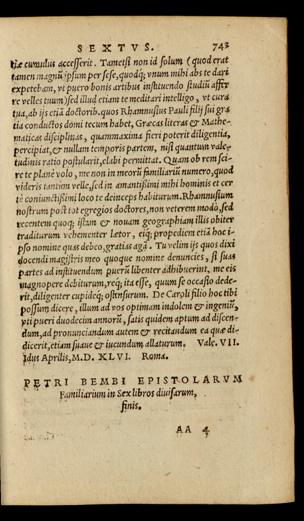 SEXTVS. 743
tiæ cumulus accesserit. Tametsi non id solum (quod erat
tamen magnũ ipsum per sese, quodq; vnum mihi abs te dari
expetebam, vt puero bonis artibus instituendo studiũ affer
re velles tuum) sed illud etiam te meditari intelligo, vt cura
tua, ab ijs etiã doctorib. quos Rhamnusius Pauli filij sui gra
tia conductos domi tecum habet, Græcas literas & Mathe-
maticas disciplinas, quammaxima fieri poterit diligentia,
percipiat, & nullam temporis partem, nisi quantum vale-
tudinis ratio postularit, elabi permittat. Quam ob rem sci-
re te planè volo, me non in meorũ familiariũ numero, quod
videris tantùm velle, sed in amantissimi mihi hominis et cer
tè coniunctissimi loco te deinceps habiturum. Rhamnusium
nostrum post tot egregios doctores, non veterem modò, sed
recentem quoq; istam & nouam geographiam illis obiter
traditurum vehementer lætor, eiq; propediem etiã hoc i-
pso nomine quas debeo, gratias agã. Tu velim ijs quos dixi
docendi magistris meo quoque nomine denuncies, si suas
partes ad instituendum puerũ libenter adhibuerint, me eis
magnopere debiturum, req; ita esse, quum se occasio dede-
rit, diligenter cupideq; ostensurum. De Caroli filio hoc tibi
possum dicere, illum ad vos optimam indolem & ingeniũ,
vti pueri duodecim annorũ, satis quidem aptum ad discen-
dum, ad pronunciandum autem & recitandum ea quæ di-
dicerit, etiam suaue & iucundum allaturum. Vale. VII.
Idus Aprilis, M. D. XLVI. Romæ.
PETRI BEMBI EPISTOLARVM
Familiarium in Sex libros diuisarum,
finis.
AA 4